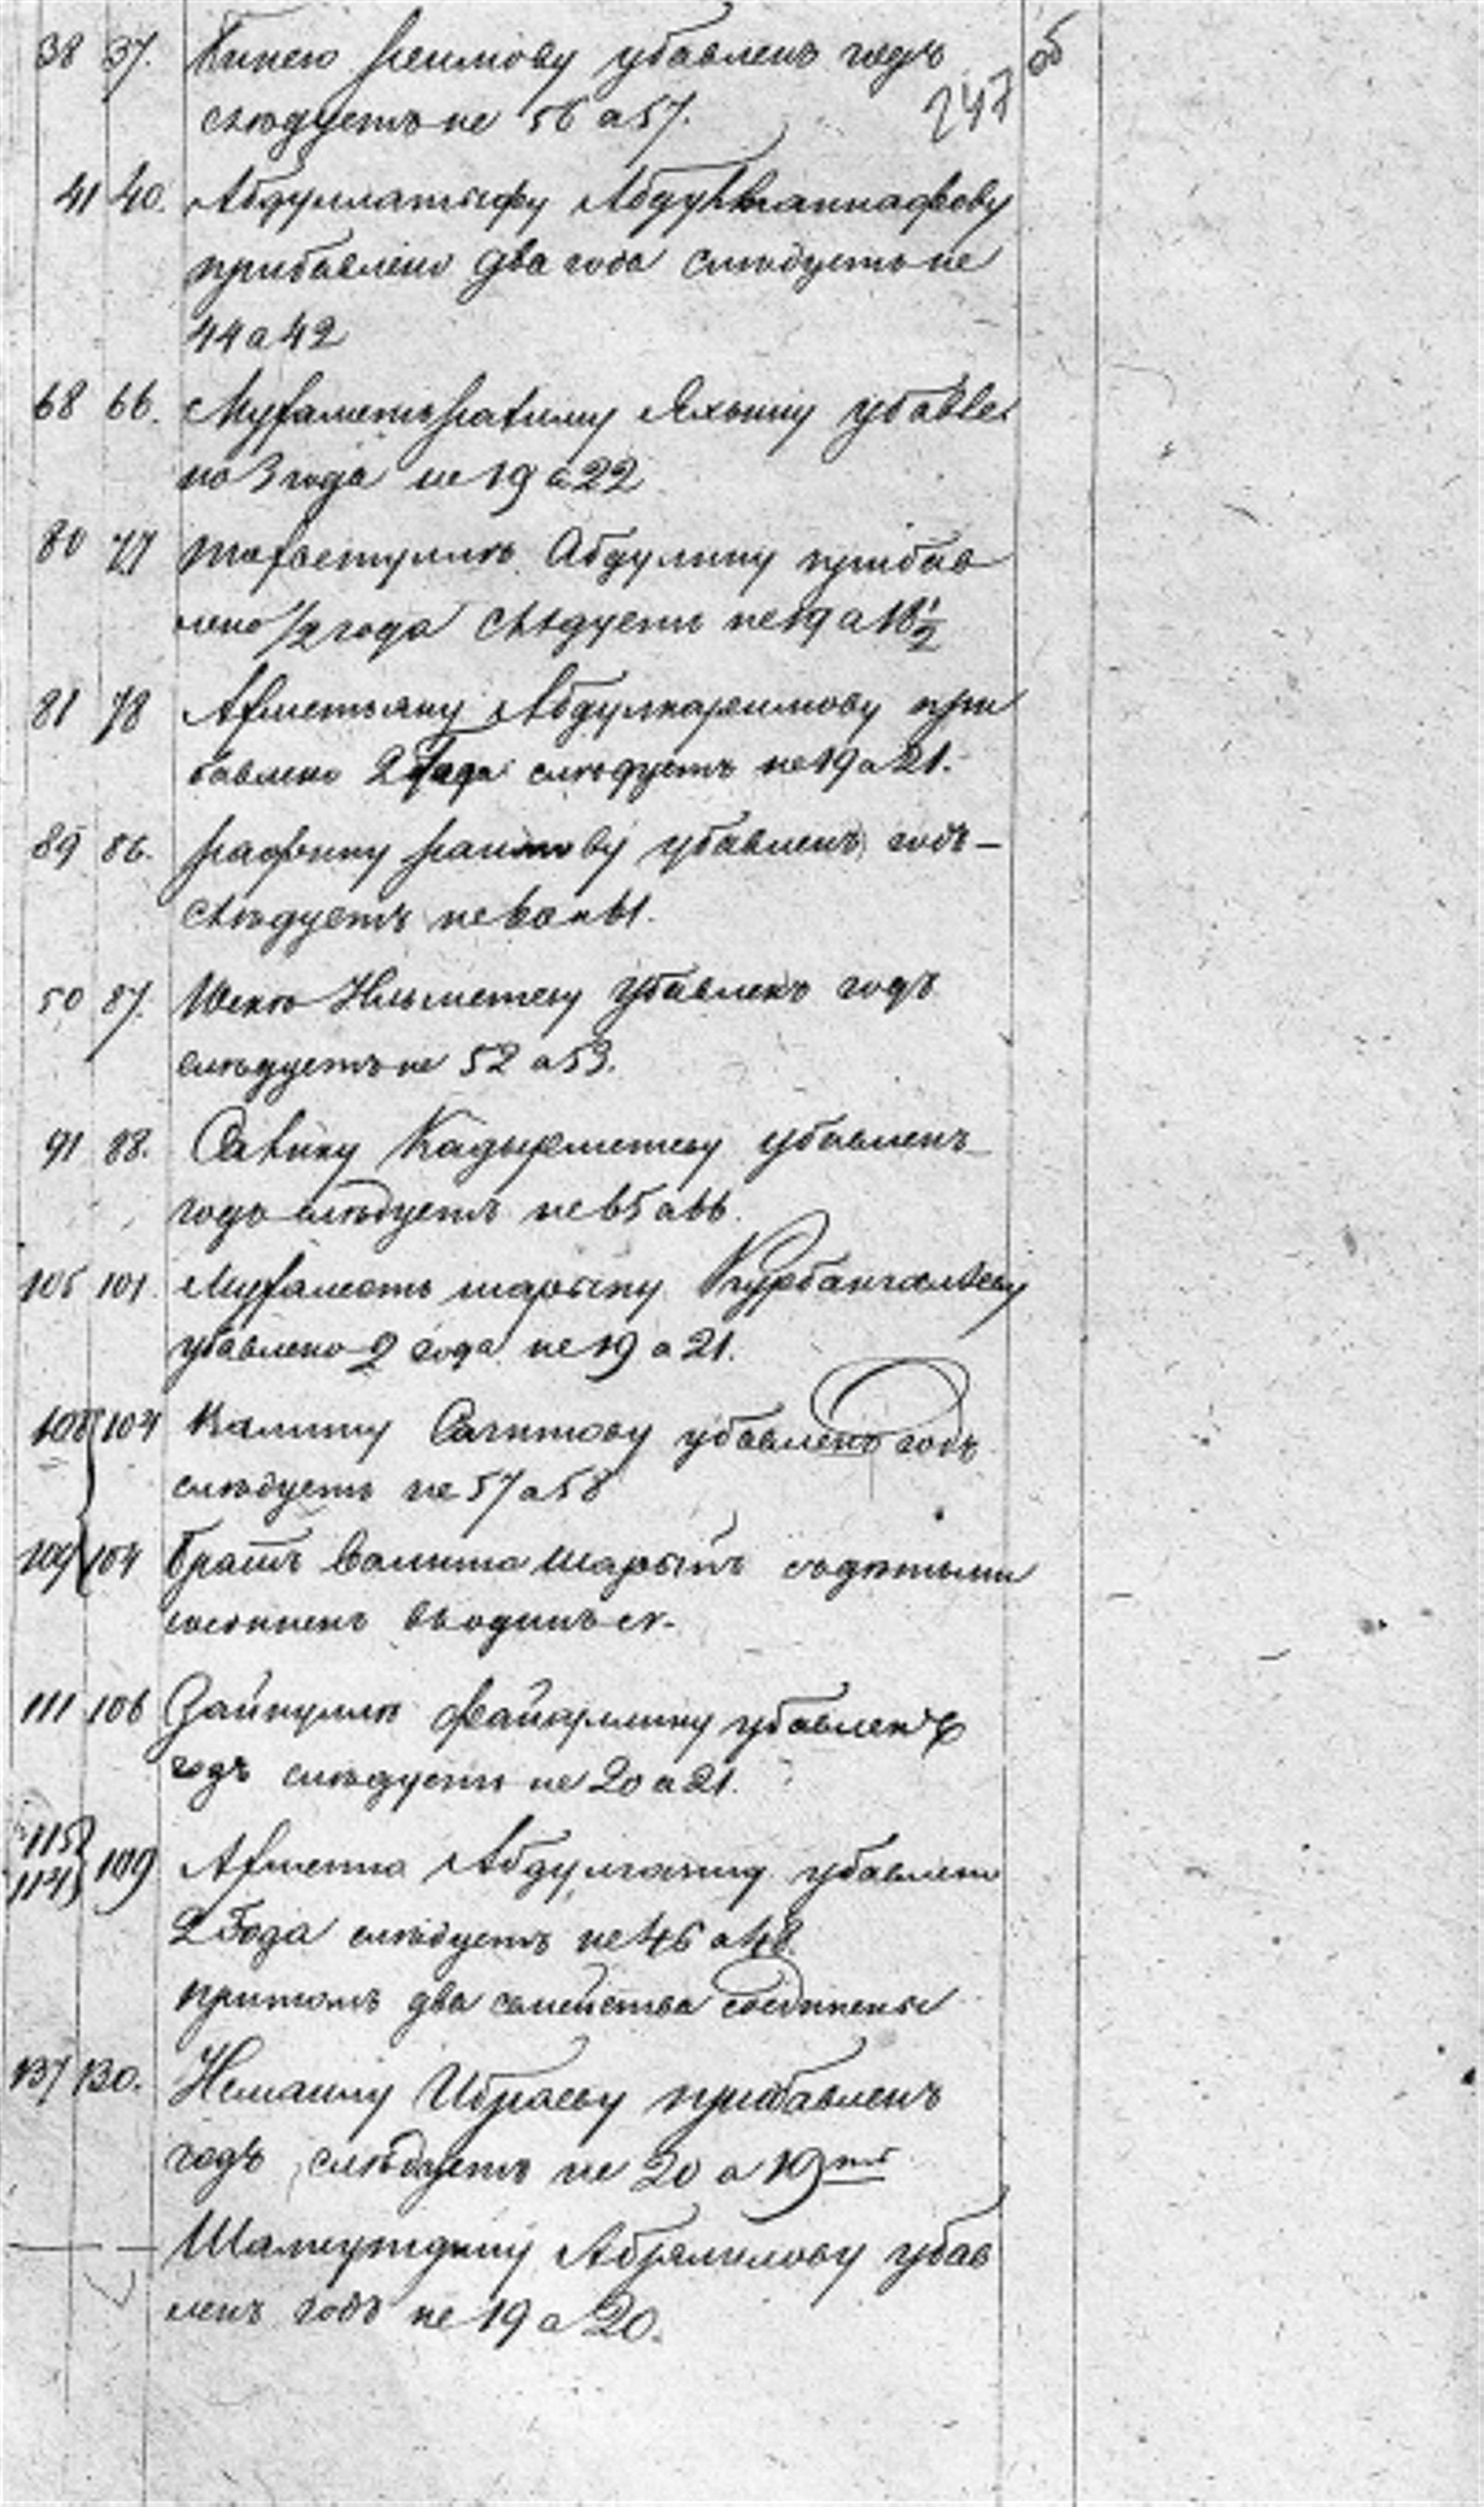 38 37. убавленъ годъ об
слѣдуетъ не 56 а 57. 247
41 40. Абдуллатыфу Абдулваннафову
прибавлено два года слѣдуетъ не
44 а 42
68 66. Мухаметърахиму Яхьину убавле
но 3 года не 19 а 22
80 77 Абдулину прибав
лено 1/2 года слѣдуетъ не 19 а 18 1/2
81 78 Ахметьяну Абдулкаримову при
бавлено 2 года слѣдуетъ не 19 а 21.
89 86. убавленъ годъ –
слѣдуетъ не 60 а 61.
50 87. убавленъ годъ
слѣдуетъ не 52 а 53.
91 88. Кадырметеву убавленъ
годъ слѣдуетъ не 65 а 66.
105 101. Мухаметъ шарыпу Курбангалѣеву
убавлено 2 года не 19 а 21.
108 104 Сагитову убавленъ годъ
слѣдуетъ не 57 а 58
109 104 Братъ Валита Шарыпъ съ дѣтьми
въ одинъ
111 106 Зайнулле убавленъ
годъ слѣдуетъ не 20 а 21.
115
114 109 Ахметша Абдулганину убавлено
2 года слѣдуетъ не 46 а 48
притомъ два семейства соединены
137 130. Исмаилу Ибраеву прибавленъ
годъ слѣдуетъ не 20 а 19
— — Шамсутдину Абдрямилову убав
ленъ годъ не 19 а 20.